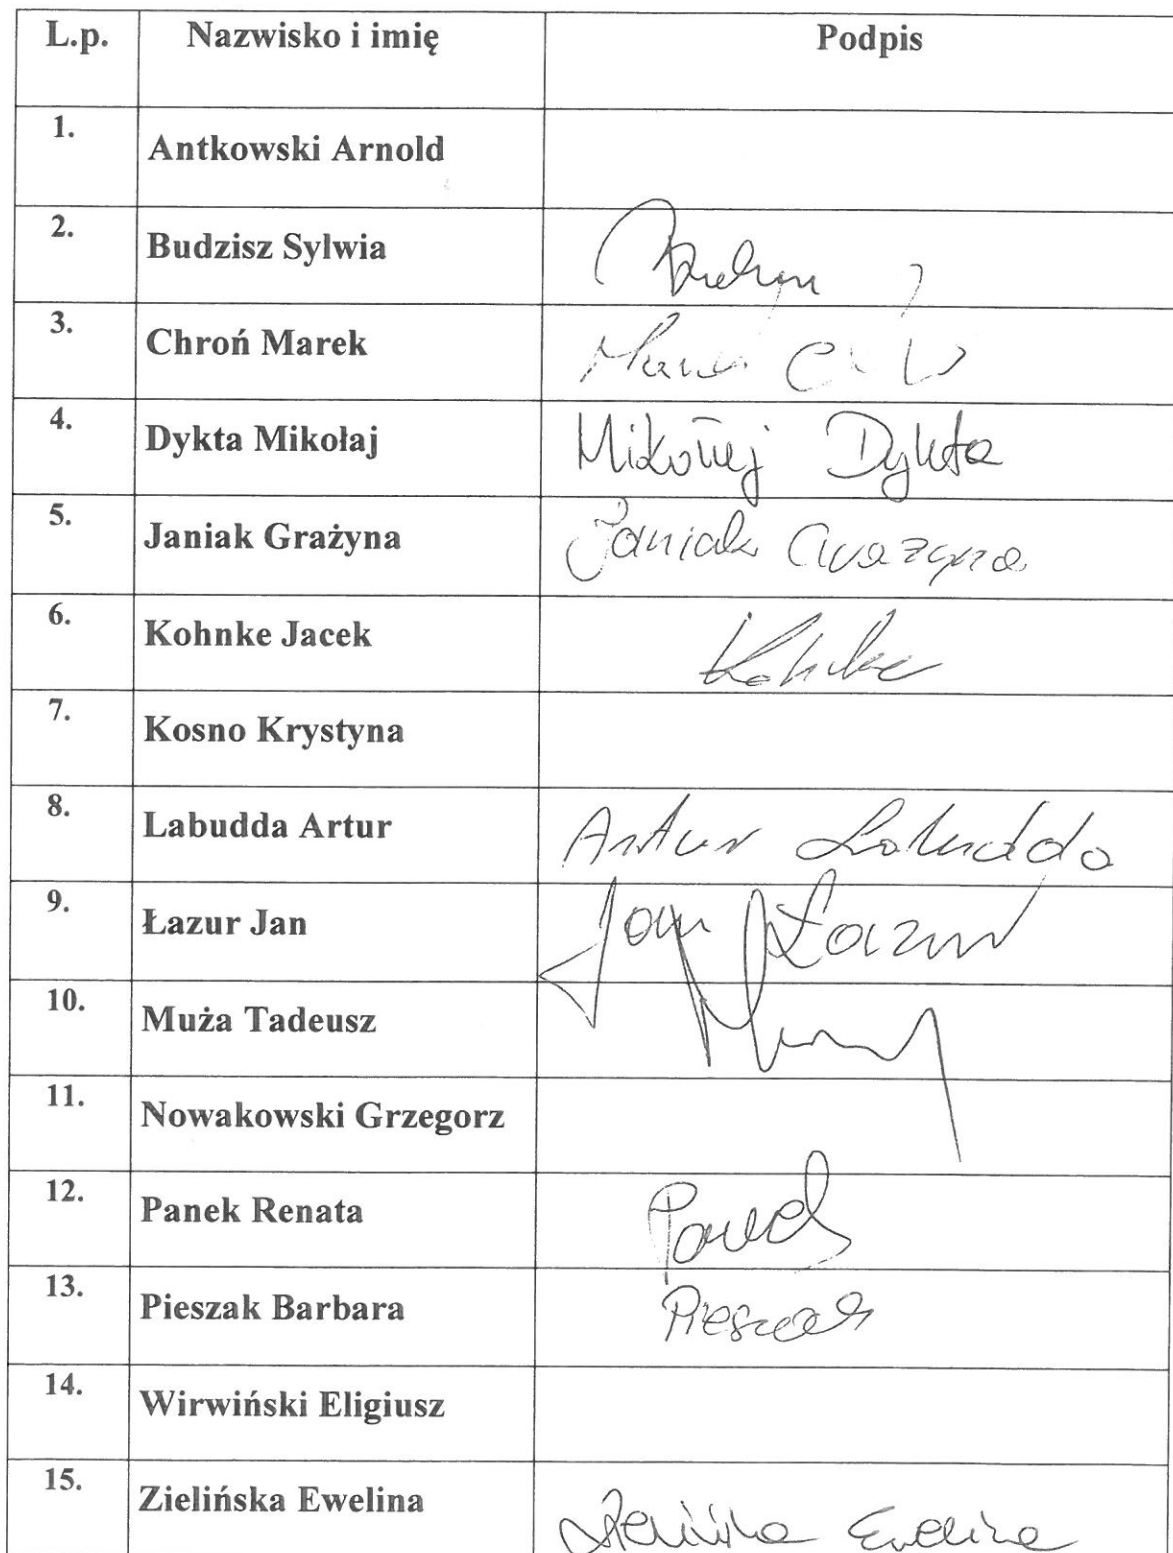 L.p. Nazwisko i imię Podpis
1. Antkowski Arnold
2. Budzisz Sylwia
3. Chroń Marek Marek
4. Dykta Mikołaj Mikołaj Dykta
5. Janiak Grażyna Janiak Grażyna
6. Kohnke Jacek Kohnke
7. Kosno Krystyna
8. Labudda Artur Artur Labudda
9. Łazur Jan Jan Łazur
10. Muża Tadeusz
11. Nowakowski Grzegorz
12. Panek Renata Panek
13. Pieszak Barbara Pieszak
14. Wirwiński Eligiusz
15. Zielińska Ewelina Zielińska Ewelina